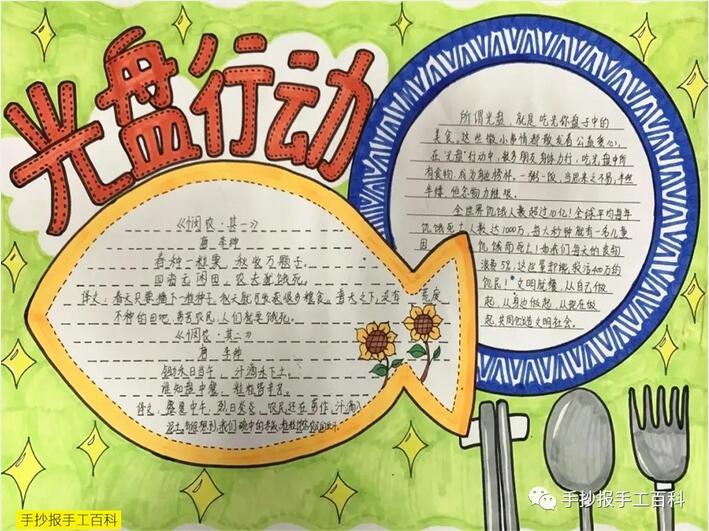 光盘行动
《悯农·其一》
唐 李绅
春种一粒粟，秋收万颗子。
四海无闲田，农夫犹饿死。
译文：春天只要播下一粒种子，秋天就可收获很多粮食。普天之下，没有荒废
不种的田地，劳苦农民，人们辛苦饿死。
《悯农·其二》
唐 李绅
锄禾日当午，汗滴禾下土。
谁知盘中餐，粒粒皆辛苦。
译文：盛夏中午，烈日炎炎，农民还在劳作，汗滴入
泥土。
所谓光盘，就是吃光你盘子中的
美食。这些微小事情都散发着公益爱心。
在“光盘”行动中，很多朋友身体力行，吃光盘中所
有食物，成为自己榜样。一粥一饭，当思来之不易，半丝
半缕，恒念物力维艰。
全世界饥饿人数超过10亿！全球平均每年
饥饿死亡人数达1000万，每六秒钟就有一名儿童
因饥饿而死亡！而我们每天的食物
浪费5%，这数量却能救活400万的
饥民！文明就餐，从自己做
起，从身边做起，从现在做
起，共同创造文明社会。
手抄报手工百科
手抄报手工百科